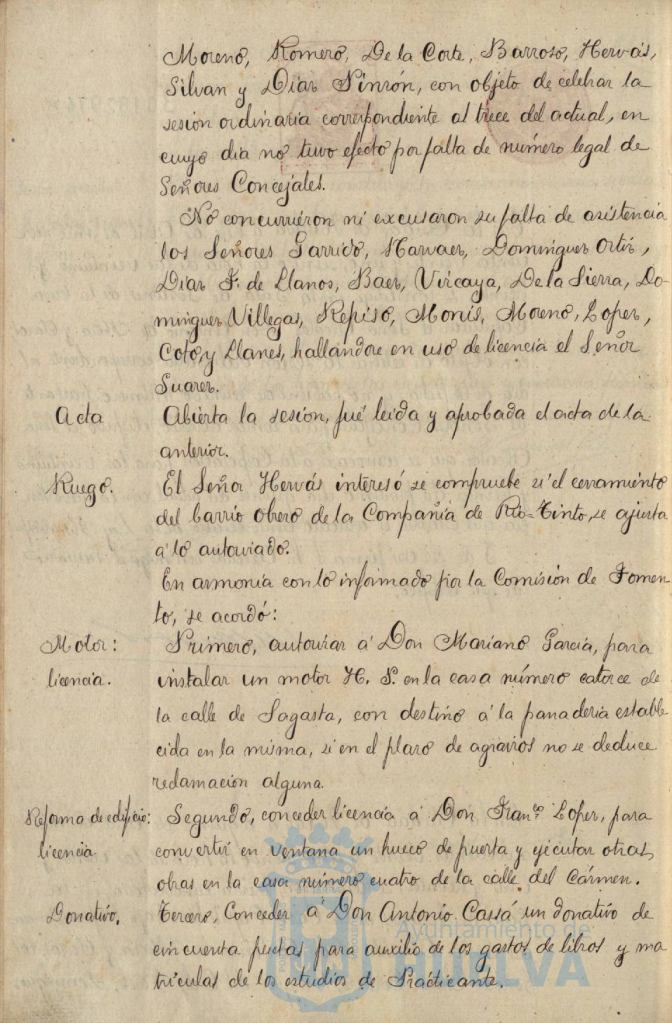 Moreno, Romero, De la Corte, Barroso, Hervás,
Silvan y Diaz Pinzón, con objeto de celebrar la
sesión ordinaria correspondiente al trece del actual, en
cuyo dia no tuvo efecto por falta de número legal de
Señores Concejales.
No concurrieron ni excusaron su falta de asistencia
los Señores Garrido, Narvaez, Dominguez Ortiz,
Diaz F. de Llanos, Baez, Vizcaya, De la Sierra, Do-
minguez Villegas, Repiso, Monis, Moreno, Lopez,
Coto, y Llanes, hallandose en uso de licencia el Señor
Suarez.
Acta Abierta la sesión, fué leida y aprobada el acta de la
anterior.
Ruego. El Señor Hervás interesó se compruebe si el cerramiento
del barrio obrero de la Compañia de Rio=Tinto, se ajusta
a lo autorizado.
En armonia con lo informado por la Comisión de Fomen
to, se acordó:
Motor: Primero, autorizar á Don Mariano Garcia, para
licencia. instalar un motor H. P. en la casa número catorce de
la calle de Sagasta, con destino á la panaderia estable
cida en la misma, si en el plazo de agravios no se deduce
reclamación alguna.
Reforma de edificio: Segundo, conceder licencia á Don Fran.co Lopez, para
licencia convertir en ventana un hueco de puerta y ejecutar otras
obras en la casa número cuatro de la calle del Cármen.
Donativo. Tercero, Conceder á Don Antonio Cassá un donativo de
cincuenta pesetas para auxilio de los gastos de libros y ma
triculas de los estudios de Practicante.
Ayuntamiento de
HUELVA